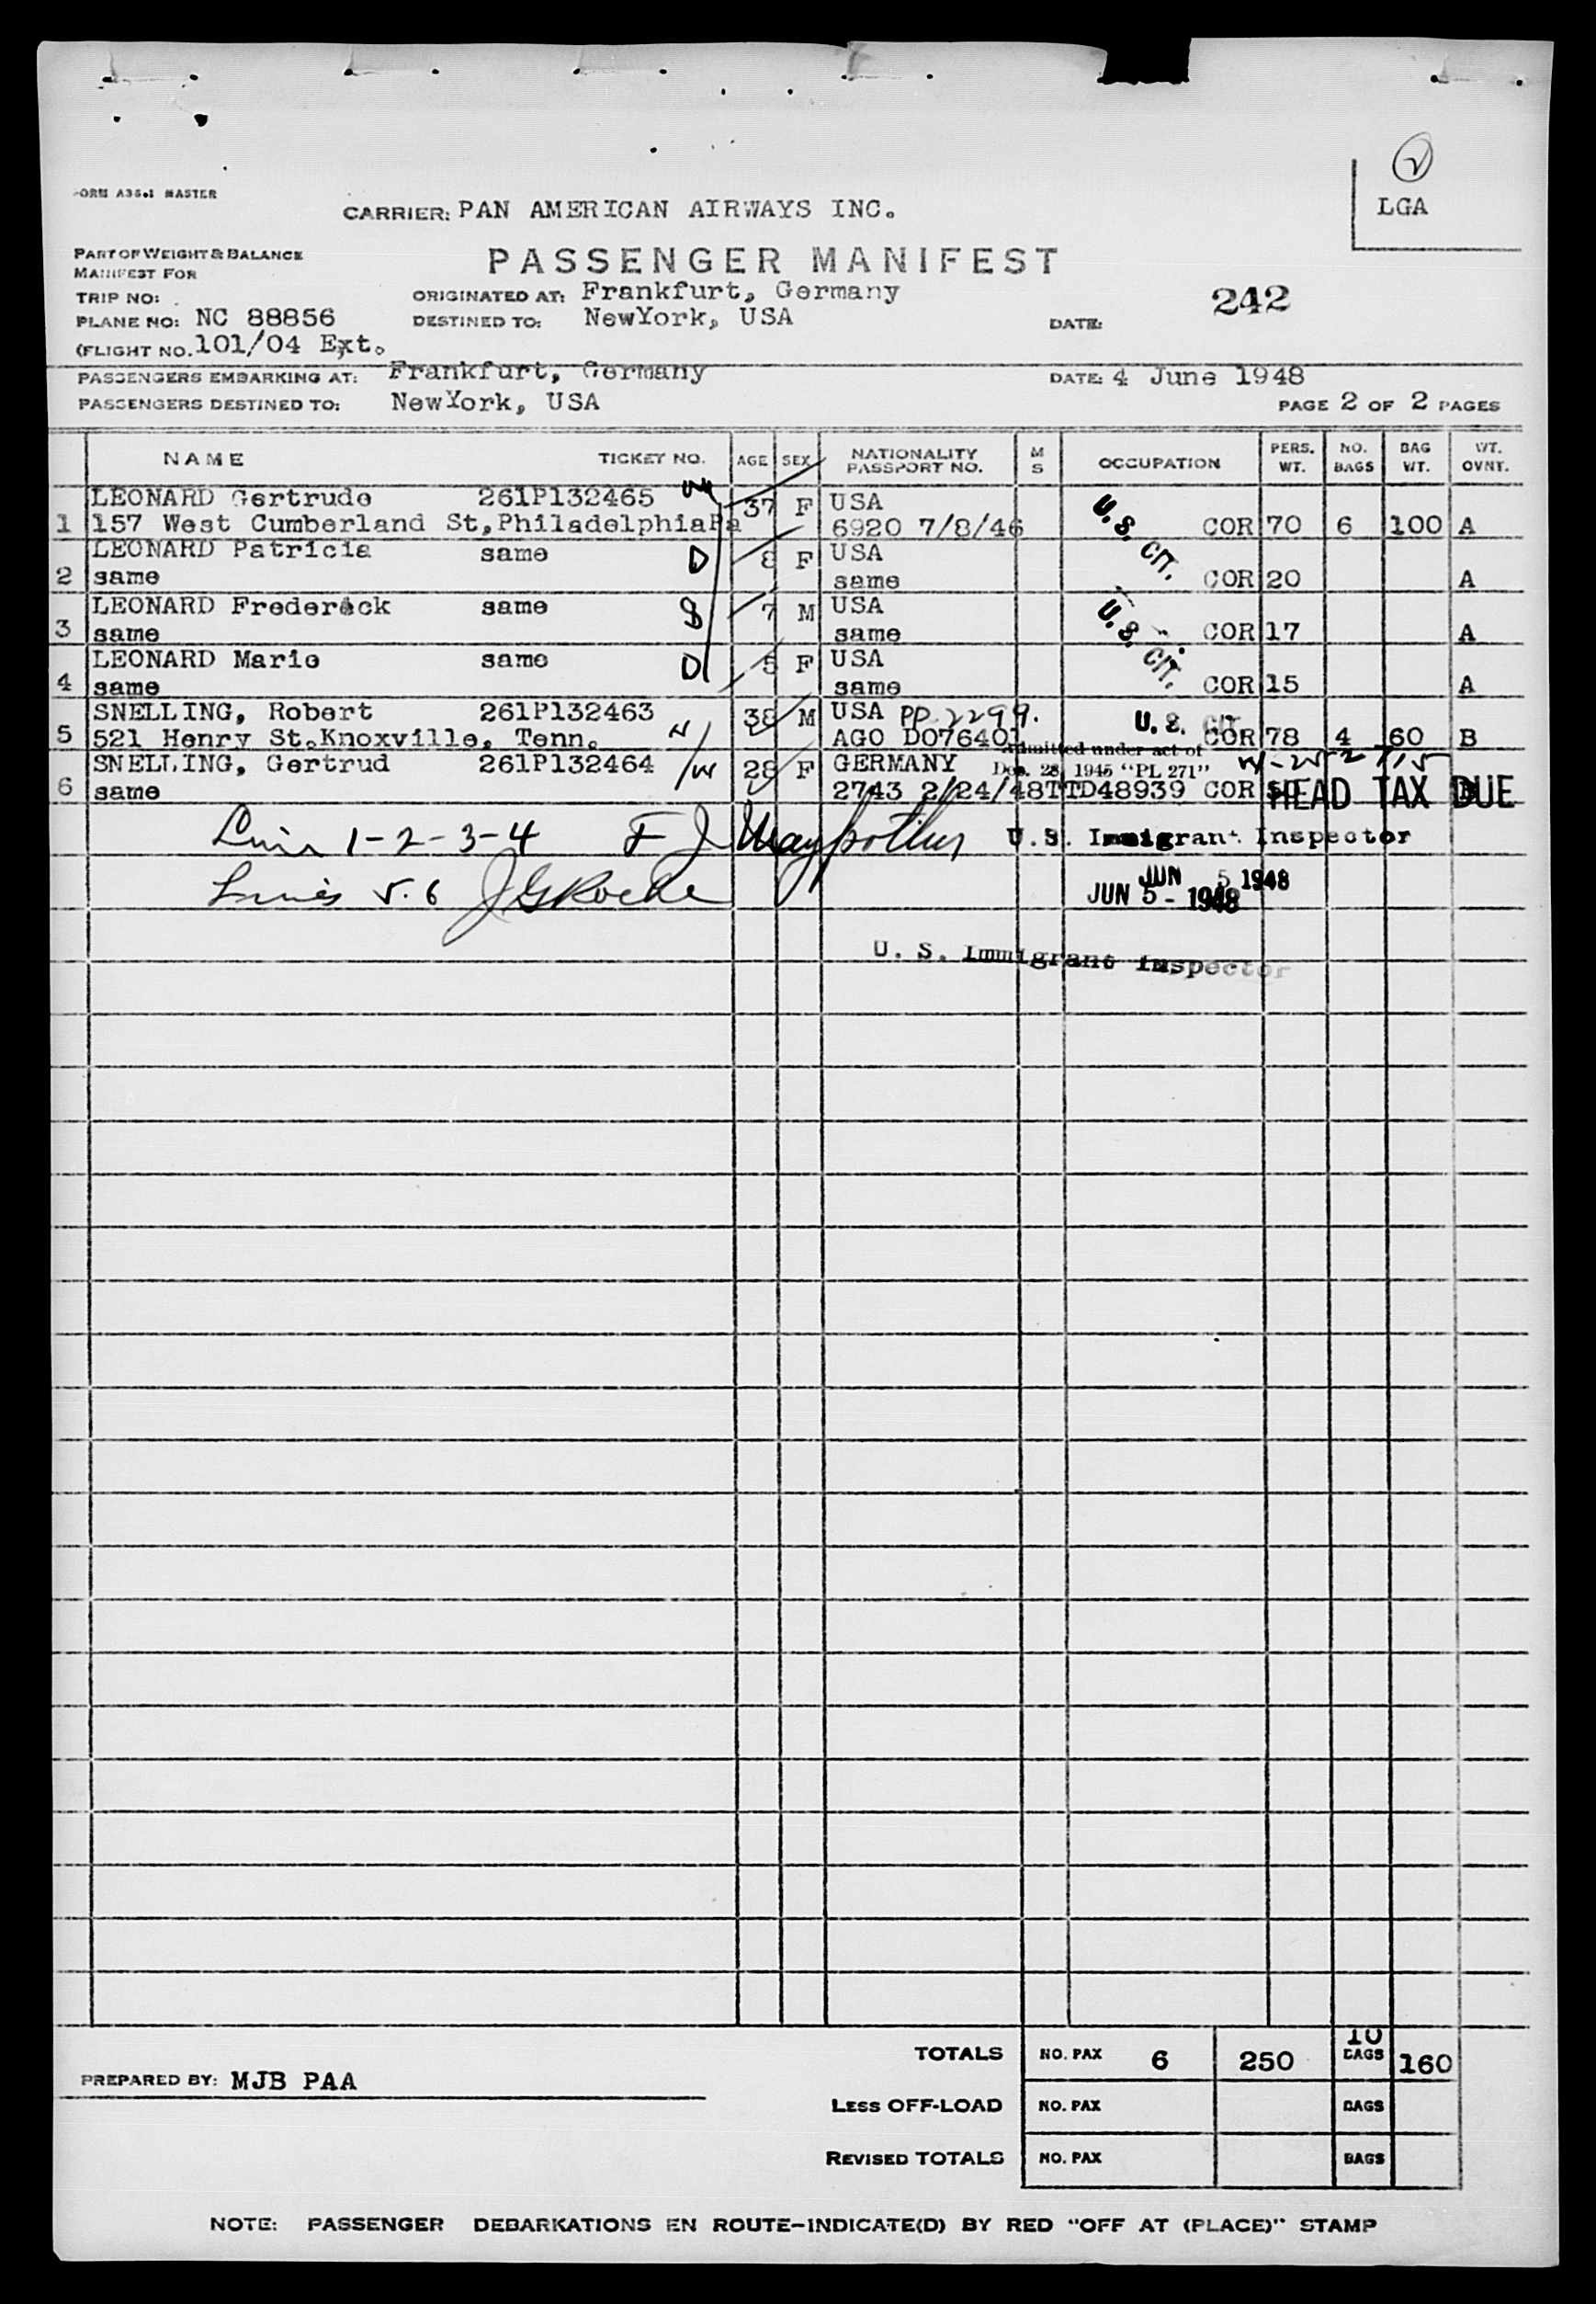 FORM A36.1 MASTER
CARRIER: PAN AMERICAN AIRWAYS INC.
LGA
PART OF WEIGHT & BALANCE
MANIFEST FOR
PASSENGER MANIFEST
TRIP NO:
ORIGINATED AT: Frankfurt, Germany
242
PLANE NO: NC 88856
DESTINED TO: NewYork, USA
DATE:
(FLIGHT NO. 101/04 Ext.
PASSENGERS EMBARKING AT: Frankfurt, Germany
DATE: 4 June 1948
PASSENGERS DESTINED TO: NewYork, USA
PAGE 2 OF 2 PAGES
NAME TICKET NO. AGE SEX NATIONALITY PASSPORT NO. M S OCCUPATION PERS. WT. NO. BAGS BAG WT. WT. OVNT.
LEONARD Gertrude 261P132465 37 F USA
1 157 West Cumberland St,PhiladelphiaPa 6920 7/8/46 U.S. CIT. COR 70 6 100 A
LEONARD Patricia same D 8 F USA
2 same same COR 20 A
LEONARD Frederick same S 7 M USA
3 same same U.S. CIT. COR 17 A
LEONARD Marie same D 5 F USA
4 same same COR 15 A
SNELLING, Robert 261P132463 38 M USA PP 2299.
5 521 Henry St.Knoxville, Tenn. AGO D076401 U.S. CIT. COR 78 4 60 B
SNELLING, Gertrud 261P132464 28 F GERMANY
Admitted under act of
Dec. 28, 1945 "PL 271"
6 same 2743 2/24/48TTD48939 COR 50 B
HEAD TAX DUE
1-2-3-4
U.S. Immigrant Inspector
Lines 5.6 J G Roche
JUN 5 1948
JUN 5 - 1948
U. S. Immigrant Inspector
TOTALS NO. PAX 6 250 10 BAGS 160
PREPARED BY: MJB PAA
LESS OFF-LOAD NO. PAX BAGS
REVISED TOTALS NO. PAX BAGS
NOTE: PASSENGER DEBARKATIONS EN ROUTE-INDICATE(D) BY RED "OFF AT (PLACE)" STAMP